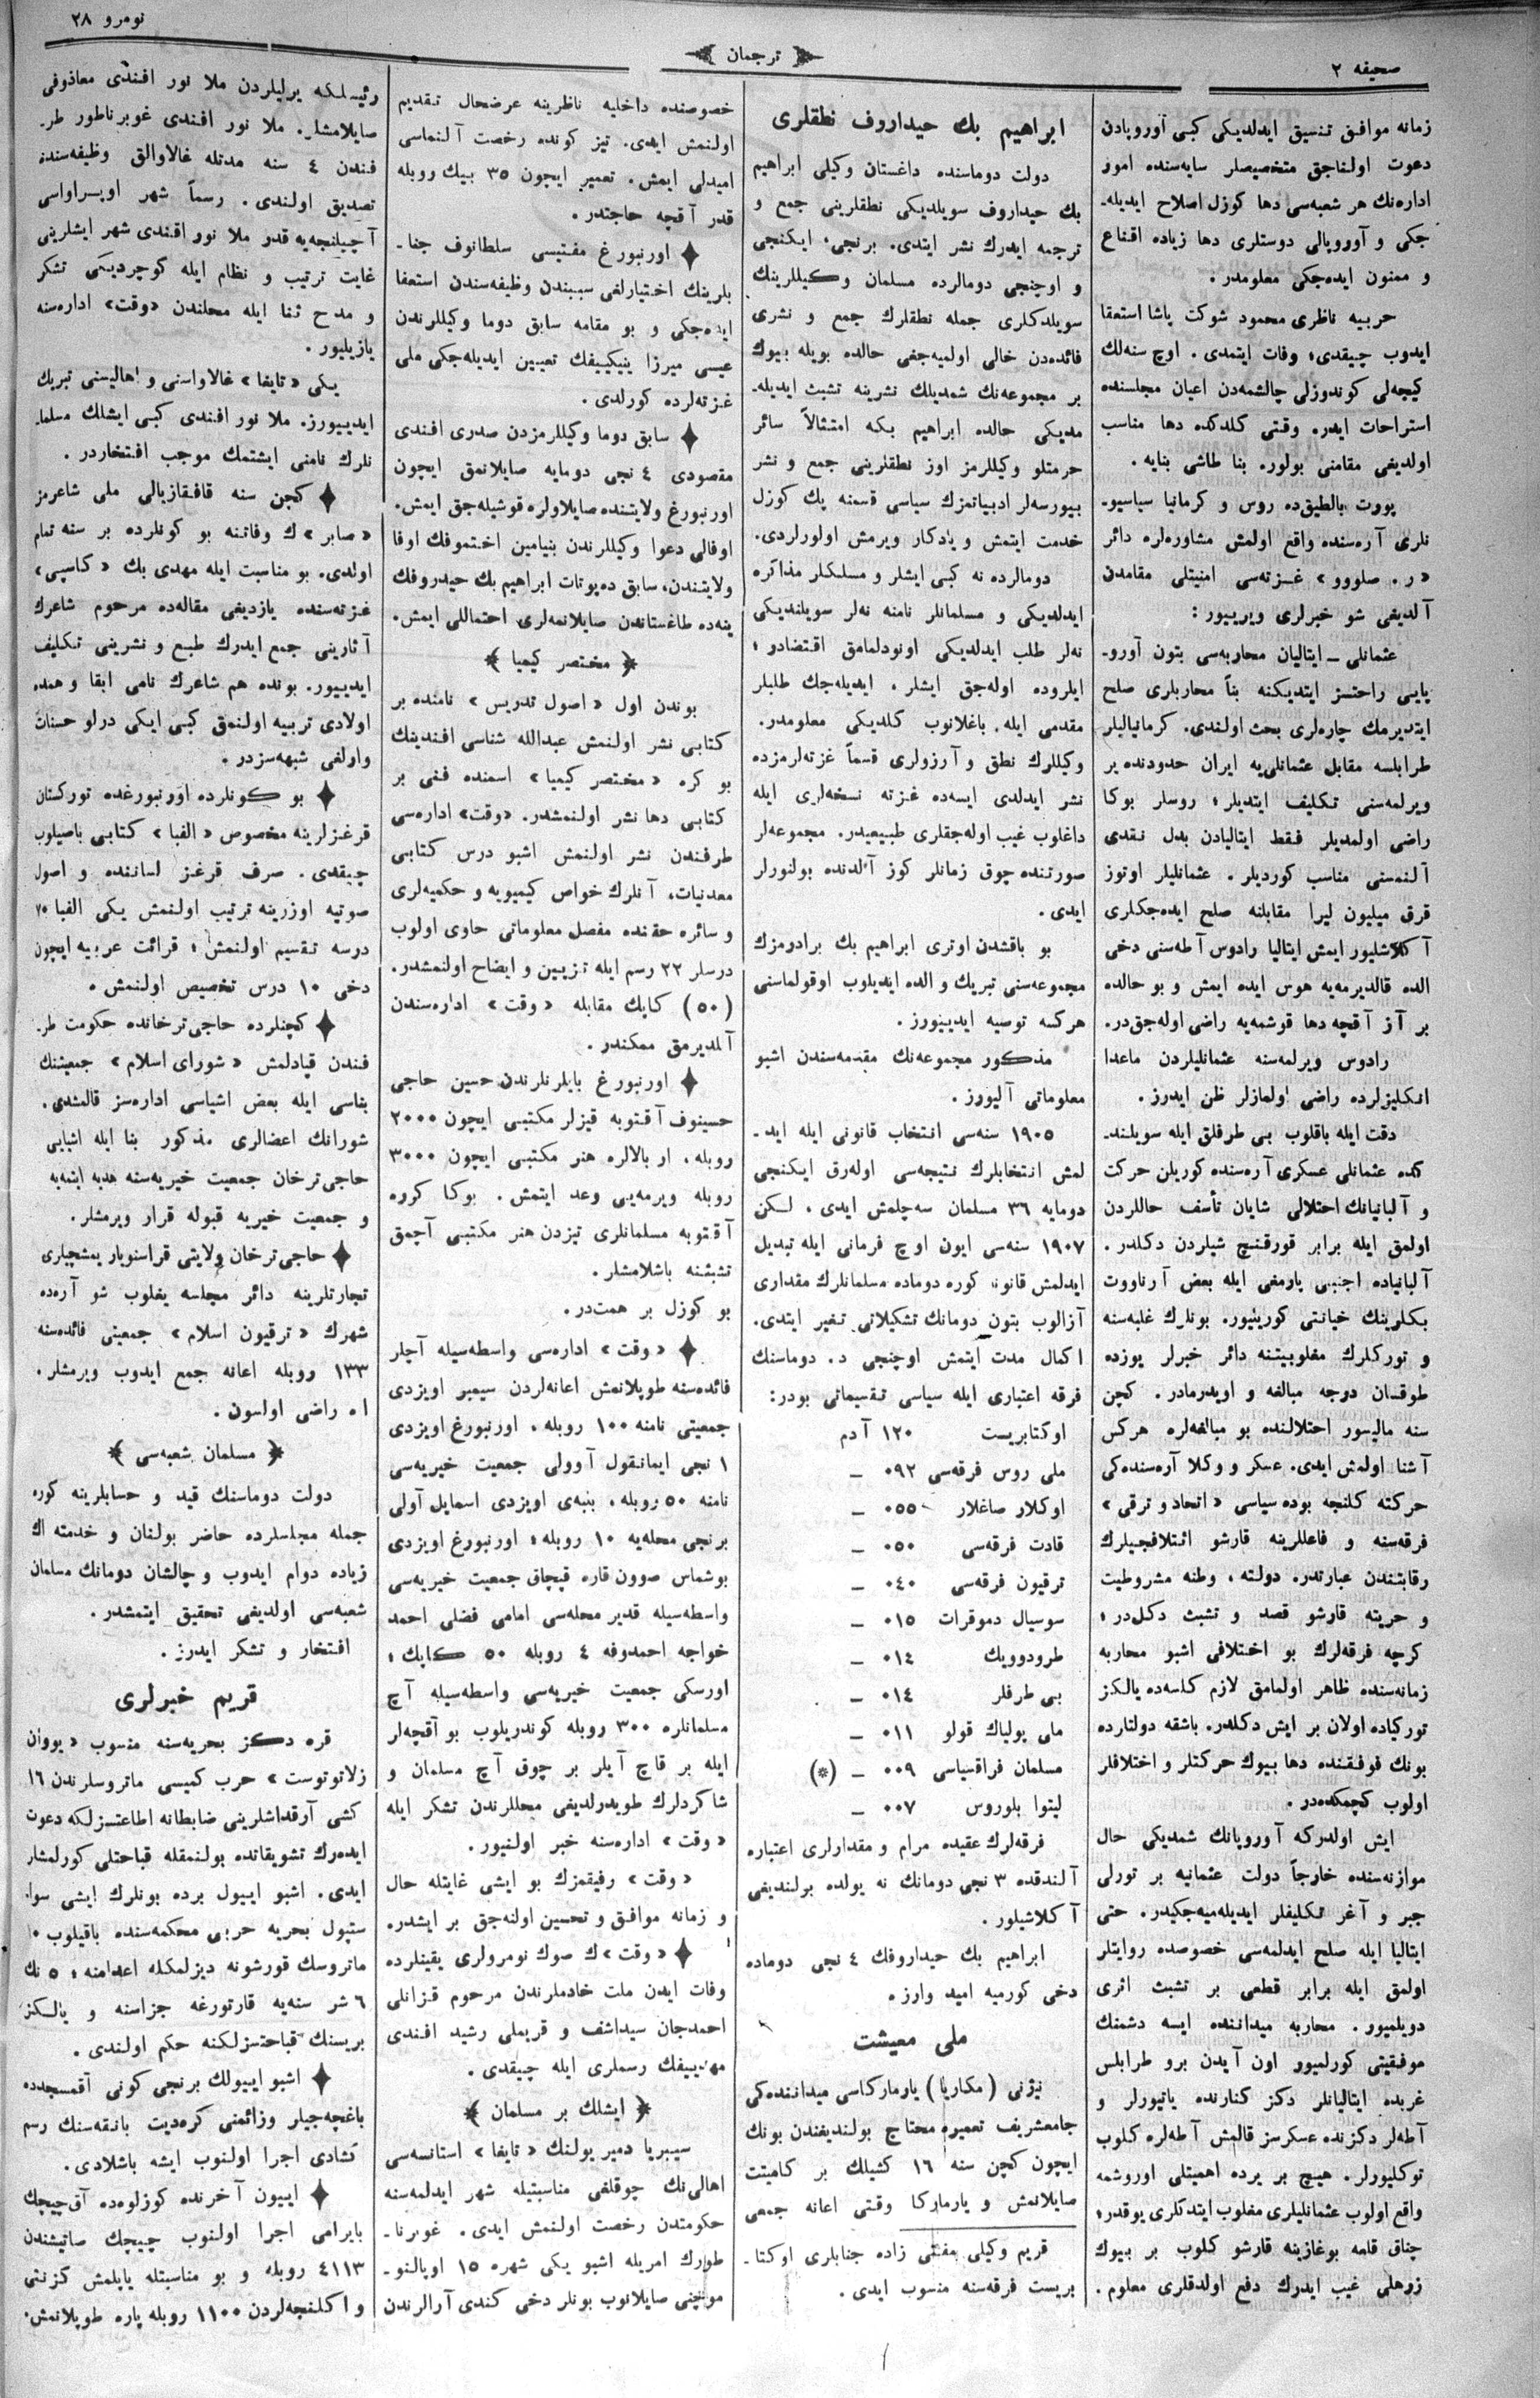 صحیفه ۲
ترجمان
نومرو ۲۸
زمانه موافق تنسیق ایدلدیکی کبی آوروپادن
دعوت اولناجق متخصصلر سایه‌سنده امور
اداره‌نك هر شعبه‌سی دها کوزل اصلاح ایدیله‌ـ
جکی و آوروپالی دوستلری دها زیاده اقناع
و ممنون ایده‌جکی معلومدر.
حربیه ناظری محمود شوکت پاشا استعفا
ایدوب چیقدی؛ وفات ایتمدی. اوچ سنه‌لك
کیجه‌لی کوندوزلی چالشمه‌دن اعیان مجلسنده
استراحات ایدر. وقتی کلدکده دها مناسب
اولدیغی مقامنی بولور. بنا طاشی بنایه.
پورت بالطیق‌ده روس و کرمانیا سیاسیوـ
نلری آره‌سنده واقع اولمش مشاوره‌لره دائر
«ر. صلووو» غزته‌سی امنیتلی مقامدن
آلدیغی شو خبرلری ویرییور:
عثمانلی ـ ایتالیان محاربه‌سی بتون آوروـ
پایی راحتسز ایتدیکنه بناً محاربلری صلح
ایتدیرمك چاره‌لری بحث اولندی. کرمانیالیلر
طرابلسه مقابل عثمانلی‌یه ایران حدودنده یر
ویرلمه‌سنی تکلیف ایتدیلر؛ روسلر بوکا
راضی اولمدیلر فقط ایتالیادن بدل نقدی
آلنمسنی مناسب کوردیلر. عثمانلیلر اوتوز
قرق میلیون لیرا مقابلنه صلح ایده‌جکلری
آکلاشلیور ایمش ایتالیا رادوس آطه‌سنی دخی
الده قالدیرمه‌یه هوس ایده ایمش و بو حالده
بر آز آقچه دها قوشمه‌یه راضی اوله‌جق‌در.
رادوس ویرلمه‌سنه عثمانلیلردن ماعدا
انکلیزلرده راضی اولمازلر ظن ایدرز.
دقت ایله باقلوب بی طرفلق ایله سویلندـ
کده عثمانلی عسکری آره‌سنده کوریلن حرکت
و آلبانیانك احتلالی شایان تأسف حاللردن
اولمق ایله برابر قورقنچ شیلردن دکلدر.
آلبانیاده اجنبی یارمغی ایله بعض آرناووت
بکلرینك خیانتی کورینیور. بونلرك غلبه‌سنه
و تورکلرك مغلوبیتنه دائر خبرلر یوزده
طوقسان دوجه مبالغه و اویدرمادر. کچن
سنه مالیسور احتلالنده بو مبالغه‌لره هرکس
آشنا اولمش ایدی. عسکر و وکلا آره‌سنده‌کی
حرکته کلنجه بوده سیاسی «اتحاد و ترقی»
فرقه‌سنه و فاعللرینه قارشو ائتلافجیلرك
رقابتندن عبارتدر. دولته، وطنه مشروطیت
و حریته قارشو قصد و تشبث دکل‌در؛
کرچه فرقه‌لرك بو اختلافی اشبو محاربه
زمانه‌سنده ظاهر اولمامق لازم کلسه‌ده یالکز
تورکیاده اولان بر ایش دکلدر. باشقه دولتلرده
بونك فوقنده دها بیوك حرکتلر و اختلافلر
اولوب کچمکده‌در.
ایش اولدرکه آوروپانك شمدیکی حال
موازنه‌سنده خارجاً دولت عثمانیه بر تورلی
جبر و آغر تکلیفلر ایدیله‌میه‌جکیدر. حتی
ایتالیا ایله صلح ایدلمه‌سی خصوصده روایتلر
اولمق ایله برابر قطعی بر تشبث اثری
دویلمیور. محاربه میداننده ایسه دشمنك
موفقیتی کورلمیور اون آیدن برو طرابلس
غربده ایتالیانلر دکز کنارنده یاتیورلر و
آطه‌لر دکزنده عسکرسز قالمش آطه‌لره کلوب
توکلیورلر. هیچ بر یرده اهمیتلی اوروشمه
واقع اولوب عثمانلیلری مغلوب ایتدکلری یوقدر؛
چناق قلعه بوغازینه قارشو کلوب بر بیوك
زرهلی غیب ایدرك دفع اولدقلری معلوم.
ابراهیم بك حیداروف نطقلری
دولت دوماسنده داغستان وکیلی ابراهیم
بك حیداروف سویلدیکی نطقلرینی جمع و
ترجمه ایدرك نشر ایتدی. برنجی، ایکنجی
و اوچنجی دومالرده مسلمان وکیللرینك
سویلدکلری جمله نطقلرك جمع و نشری
فائده‌دن خالی اولمیه‌جغی حالده بویله بیوك
بر مجموعه‌نك شمدیلك نشرینه تشبث ایدیله‌ـ
مدیکی حالده ابراهیم بکه امتثالاً سائر
حرمتلو وکیللرمز اوز نطقلرینی جمع و نشر
بیورسه‌لر ادبیاتمزك سیاسی قسمنه پك کوزل
خدمت ایتمش و یادکار ویرمش اولورلردی.
دومالرده نه کبی ایشلر و مسلکلر مذاکره
ایدلدیکی و مسلمانلر نامنه نه‌لر سویلندیکی
نه‌لر طلب ایدلدیکی اونودلمامق اقتضادر؛
ایلروده اوله‌جق ایشلر، ایدیله‌جك طلبلر
مقدمی ایله باغلانوب کلدیکی معلومدر.
وکیللرك نطق و آرزولری قسماً غزته‌لرمزده
نشر ایدلدی ایسه‌ده غزته نسخه‌لری ایله
داغلوب غیب اوله‌جقلری طبیعیدر. مجموعه‌لر
صورتنده چوق زمانلر کوز آلدنده بولنورلر
ایدی.
بو باقشدن اوتری ابراهیم بك برادرمزك
مجموعه‌سنی تبریك و الده ایدیلوب اوقولماسنی
هرکسه توصیه ایدییورز.
مذکور مجموعه‌نك مقدمه‌سندن اشبو
معلوماتی آلیورز.
۱۹۰۵ سنه‌سی انتخاب قانونی ایله ایدـ
لمش انتخابلرك نتیجه‌سی اوله‌رق ایکنجی
دومایه ۳۶ مسلمان سه‌چلمش ایدی. لکن
۱۹۰۷ سنه‌سی ایون اوچ فرمانی ایله تبدیل
ایدلمش قانونه کوره دوماده مسلمانلرك مقداری
آزالوب بتون دومانك تشکیلاتی تغیر ایتدی.
اکمال مدت ایتمش اوچنجی د. دوماسنك
فرقه اعتباری ایله سیاسی تقسیماتی بودر:
اوکتابریست ۱۲۰ آدم
ملی روس فرقه‌سی ۰۹۲ ـ
اوکلار صاغلار ۰۵۵ ـ
قادت فرقه‌سی ۰۵۰ ـ
ترقیون فرقه‌سی ۰۴۰ ـ
سوسیال دموقرات ۰۱۵ ـ
طرودوویك ۰۱۴ ـ
بی طرفلر ۰۱۴ ـ
ملی پولیاك قولو ۰۱۱ ـ
مسلمان فراقسیاسی ۰۰۹ ـ (*)
لیتوا بلوروس ۰۰۷ ـ
فرقه‌لرك عقیده مرام و مقدارلری اعتباره
آلندقده ۳ نجی دومانك نه یولده بولندیغی
آکلاشیلور.
ابراهیم بك حیداروفك ۴ نجی دوماده
دخی کورمیه امید وارز.
ملی معیشت
نیژنی (مکاریا) یارمارکاسی میداننده‌کی
جامعشریف تعمیره محتاج بولندیغندن بونك
ایچون کچن سنه ۱۶ کشیلك بر کامیتت
صایلانمش و یارمارکا وقتی اعانه جمعی
قریم وکیلی مفتی زاده جنابلری اوکتاـ
بریست فرقه‌سنه منسوب ایدی.
خصوصنده داخلیه ناظرینه عرضحال تقدیم
اولنمش ایدی. تیز کونده رخصت آلنماسی
امیدلی ایمش. تعمیر ایچون ۳۵ بیك روبله
قدر آقچه حاجتدر.
اورنبورغ مفتیسی سلطانوف جناـ
بلرینك اختیارلغی سببندن وظیفه‌سندن استعفا
ایده‌جکی و بو مقامه سابق دوما وکیللرندن
عیسی میرزا ینیکییفك تعیین ایدیله‌جکی ملی
غزته‌لرده کورلدی.
سابق دوما وکیللرمزدن صدری افندی
مقصودی ۴ نجی دومایه صایلانمق ایچون
اورنبورغ ولایتنده صایلاولره قوشیله‌جق ایمش.
اوفالی دعوا وکیللرندن بنیامین اختموفك اوفا
ولایتندن، سابق ده‌پوتات ابراهیم بك حیدروفك
ینه‌ده طاغستاندن صایلانمه‌لری احتماللی ایمش.
مختصر کیمیا
بوندن اول «اصول تدریس» نامنده بر
کتابی نشر اولنمش عبدالله شناسی افندینك
بو کره «مختصر کیمیا» اسمنده فنی بر
کتابی دها نشر اولنمشدر. «وقت» اداره‌سی
طرفندن نشر اولنمش اشبو درس کتابی
معدنیات، آنلرك خواص کیمیویه و حکمیه‌لری
و سائره حقنده مفصل معلوماتی حاوی اولوب
درسلر ۲۲ رسم ایله تزیین و ایضاح اولنمشدر.
(۵۰) کاپك مقابله «وقت» اداره‌سندن
آلدیرمق ممکندر.
اورنبورغ بایلرنلرندن حسین حاجی
حسینوف آقتوبه قیزلر مکتبی ایچون ۲۰۰۰
روبله، ار بالالره هنر مکتبی ایچون ۳۰۰۰
روبله ویرمه‌یی وعد ایتمش. بوکا کوره
آقتوبه مسلمانلری تیزدن هنر مکتبی آچمق
تشبثنه باشلامشلر.
بو کوزل بر همت‌در.
«وقت» اداره‌سی واسطه‌سیله آچلر
فائده‌سنه طوپلانمش اعانه‌لردن سیمبر اویزدی
جمعیتی نامنه ۱۰۰ روبله، اورنبورغ اویزدی
۱ نجی ایمانقول آوولی جمعیت خیریه‌سی
نامنه ۵۰ روبله، ینبه‌ی اویزدی اسمایل آولی
برنجی محله‌یه ۱۰ روبله؛ اورنبورغ اویزدی
بوشماس صوون قاره قیچاق جمعیت خیریه‌سی
واسطه‌سیله قدیر محله‌سی امامی فضلی احمد
خواجه احمدوفه ۴ روبله ۵۰ کاپك؛
اورسکی جمعیت خیریه‌سی واسطه‌سیله آچ
مسلمانلره ۳۰۰ روبله کوندریلوب بو آقچه‌لر
ایله بر قاچ آیلر بر چوق آچ مسلمان و
شاکردلرك طویدرلدیغی محللرندن تشکر ایله
«وقت» اداره‌سنه خبر اولنیور.
«وقت» رفیقمزك بو ایشی غایتله حال
و زمانه موافق و تحسین اولنه‌جق بر ایشدر.
«وقت»ك صوك نومرولری یقینلرده
وفات ایدن ملت خادملرندن مرحوم قزانلی
احمدجان سیداشف و قریملی رشید افندی
مهدییفك رسملری ایله چیقدی.
ایشلك بر مسلمان
سیبریا دمیر یولنك «تایغا» استانسه‌سی
اهالی‌نك چوقلغی مناسبتیله شهر ایدلمه‌سنه
حکومتدن رخصت اولنمش ایدی. غوبرناـ
طورك امریله اشبو یکی شهره ۱۵ اوپالنوـ
موچنی صایلانوب بونلر دخی کندی آرالرندن
رئیسلکه یرلیلردن ملا نور افندی معاذوفی
صایلامشلر. ملا نور افندی غوبرناطور طرـ
فندن ۴ سنه مدتله غالاوالق وظیفه‌سنده
تصدیق اولندی. رسماً شهر اوپراواسی
آچیلنجه‌یه قدر ملا نور افندی شهر ایشلرینی
غایت ترتیب و نظام ایله کوچردیکی تشکر
و مدح ثنا ایله محلندن «وقت» اداره‌سنه
یازیلیور.
یکی «تایغا» غالاواسنی و اهالیسنی تبریك
ایدییورز. ملا نور افندی کبی ایشلك مسلماـ
نلرك نامنی ایشتمك موجب افتخاردر.
کچن سنه قافقازیالی ملی شاعرمز
«صابر»ك وفاتنه بو کونلرده بر سنه تمام
اولدی. بو مناسبت ایله مهدی بك «کاسپی»
غزته‌سنده یازدیغی مقاله‌ده مرحوم شاعرك
آثارینی جمع ایدرك طبع و نشرینی تکلیف
ایدییور. بونده هم شاعرك نامی ابقا و همده
اولادی تربیه اولنمق کبی ایکی درلو حسنات
وارلغی شبهه‌سزدر.
بو کونلرده اورنبورغده تورکستان
قرغزلرینه مخصوص «الفبا» کتابی باصیلوب
چیقدی. صرف قرغز لساننده و اصول
صوتیه اوزرینه ترتیب اولنمش یکی الفبا ۷۰
درسه تقسیم اولنمش؛ قرائت عربیه ایچون
دخی ۱۰ درس تخصیص اولنمش.
کچنلرده حاجی ترخانده حکومت طرـ
فندن قپادلمش «شورای اسلام» جمعیتنك
بناسی ایله بعض اشیاسی اداره‌سز قالمشدی.
شورانك اعضالری مذکور بنا ایله اشیایی
حاجی ترخان جمعیت خیریه‌سنه هدیه ایتمه‌یه
و جمعیت خیریه قبوله قرار ویرمشلر.
حاجی ترخان ولایتی قراسنویار یمشچیلری
تجارتلرینه دائر مجلسه یغلوب شو آره‌ده
شهرك «ترقیون اسلام» جمعیتی فائده‌سنه
۱۳۳ روبله اعانه جمع ایدوب ویرمشلر.
راضی اولسون.
مسلمان شعبه‌سی
دولت دوماسنك قید و حسابلرینه کوره
جمله مجلسلرده حاضر بولنان و خدمته اك
زیاده دوام ایدوب و چالشان دومانك مسلمان
شعبه‌سی اولدیغی تحقیق ایتمشدر.
افتخار و تشکر ایدرز.
قریم خبرلری
قره دکز بحریه‌سنه منسوب «یووان
زلاتوتوست» حرب کمیسی ماتروسلرندن ۱۶
کشی آرقداشلرینی ضابطانه اطاعتسزلکه دعوت
ایده‌رك تشویقاتده بولنمقله قباحتلی کورلمشلر
ایدی. اشبو اییول برده بونلرك ایشی سواـ
ستپول بحریه حربی محکمه‌سنده باقیلوب ۱۰
ماتروسك قورشونه دیزلمکله اعدامنه؛ ۵ نك
۶ شر سنه‌یه قارتورغه جزاسنه و یالکز
بریسنك قباحتسزلکنه حکم اولندی.
اشبو اییولك برنجی کونی آقمسجدده
باغچه‌جیلر وزائمنی کره‌دیت بانقه‌سنك رسم
کشادی اجرا اولنوب ایشه باشلادی.
اییون آخرنده کوزلوه‌ده آق‌چیچك
بایرامی اجرا اولنوب چیچك صاتیشندن
۴۱۱۳ روبله و بو مناسبتله یاپلمش کزنتی
و اکلنجه‌لردن ۱۱۰۰ روبله پاره طوپلانمش.